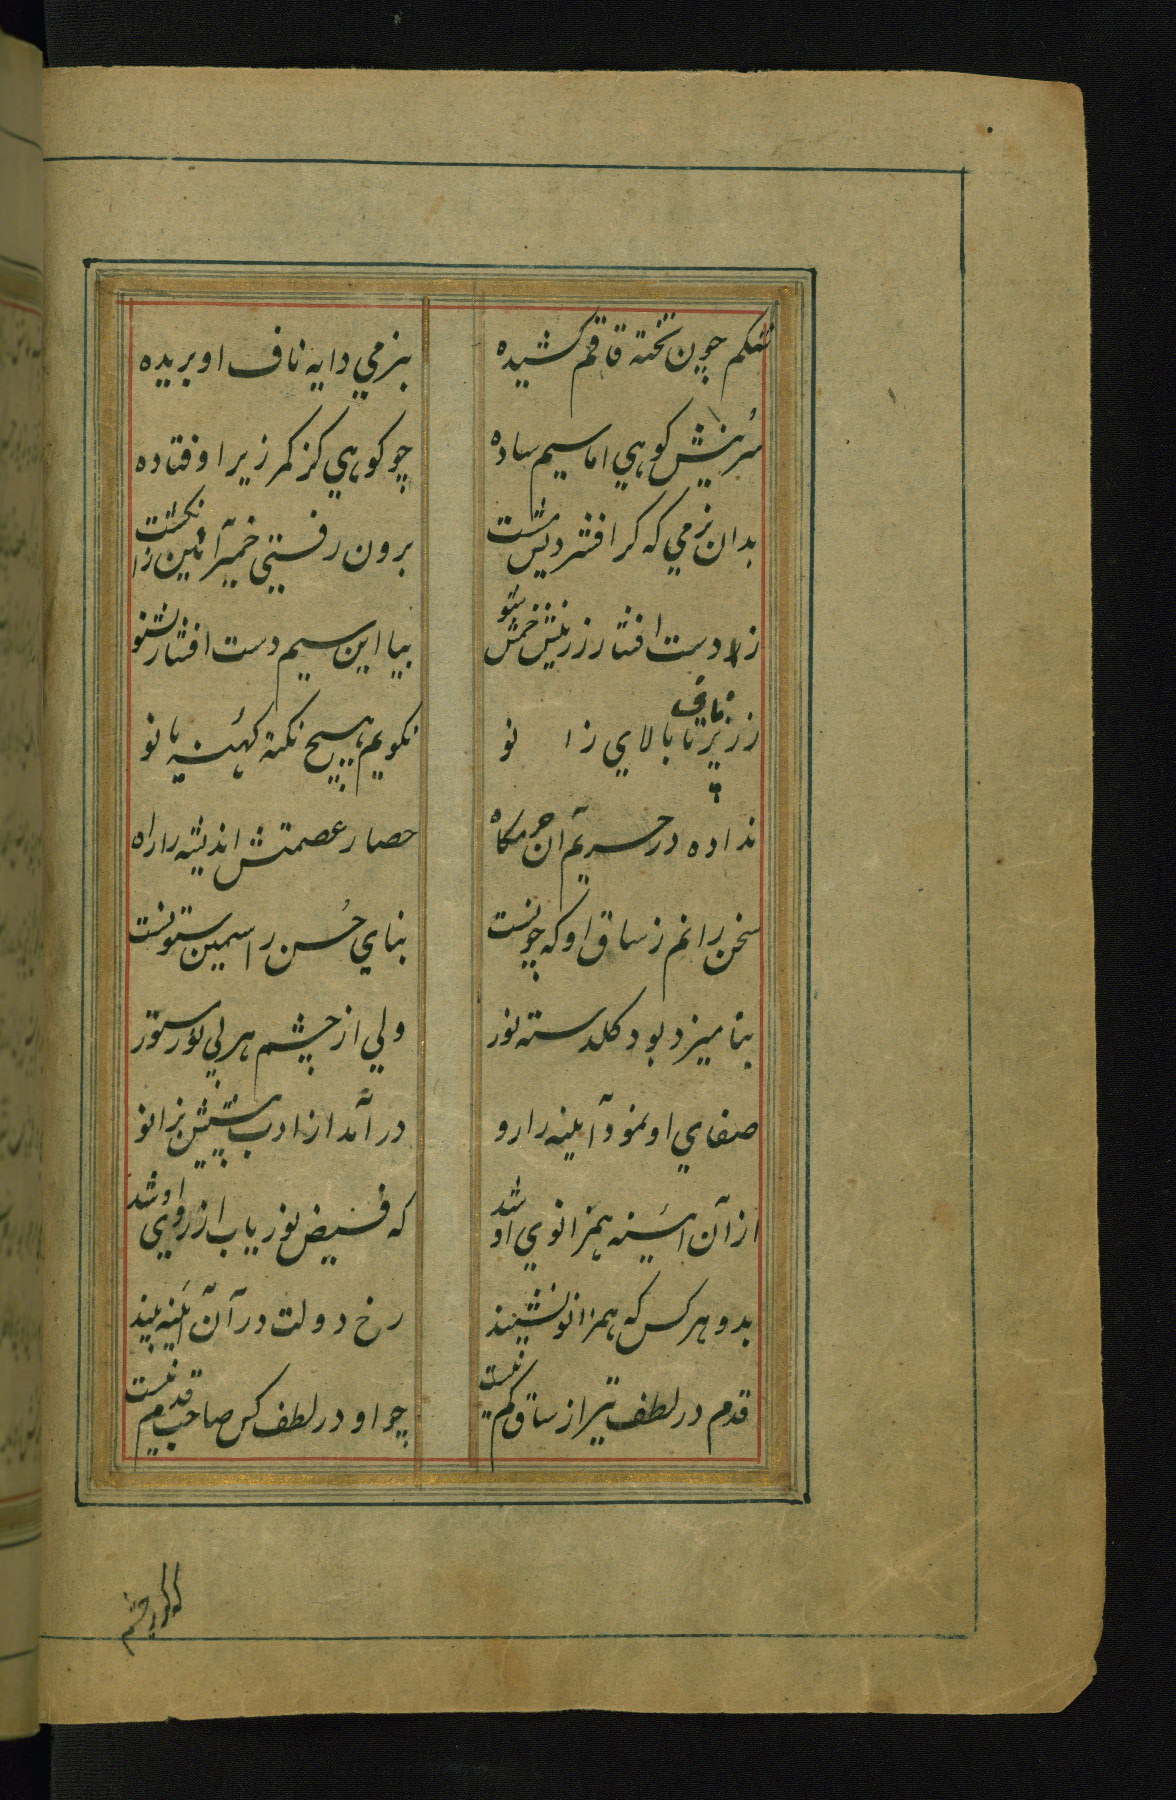 شکم چون تخته قاقم کشیده بنرمي دایه ناف او بریده
سرینش کوهي اما سیم ساده چو کوهي کز کمر زیر اوفتاده
بدان نرمي که کر افشردیش مشت برون رفتي خمیر آئین ز انکشت
ززر دست افشار زرینش خمش شو بیا این سیم دست افشار بشنو
ز زیر ناف تا بالاي زانو نکویم هیچ نکته کهنه یا نو
نداده در حریم آن حرمکاه حصار عصمتش اندیشه را راه
سخن رانم ز ساق او که چونست بناي حُسن را سیمین ستونست
بنامیزد بود کلدسته نور ولي از چشم هر بي نور مستور
صفاي او نمود آیینه را رو در آمد از ادب پیشش بزانو
از آن آیینه همزانوي او شد که فیض نور یاب از روي او شد
بدو هر کس که همزانو نشیند رخ دولت در آن آیینه بیند
قدم در لطف نیز از ساق کم نیست چو او در لطف کس صاحب قدم نیست